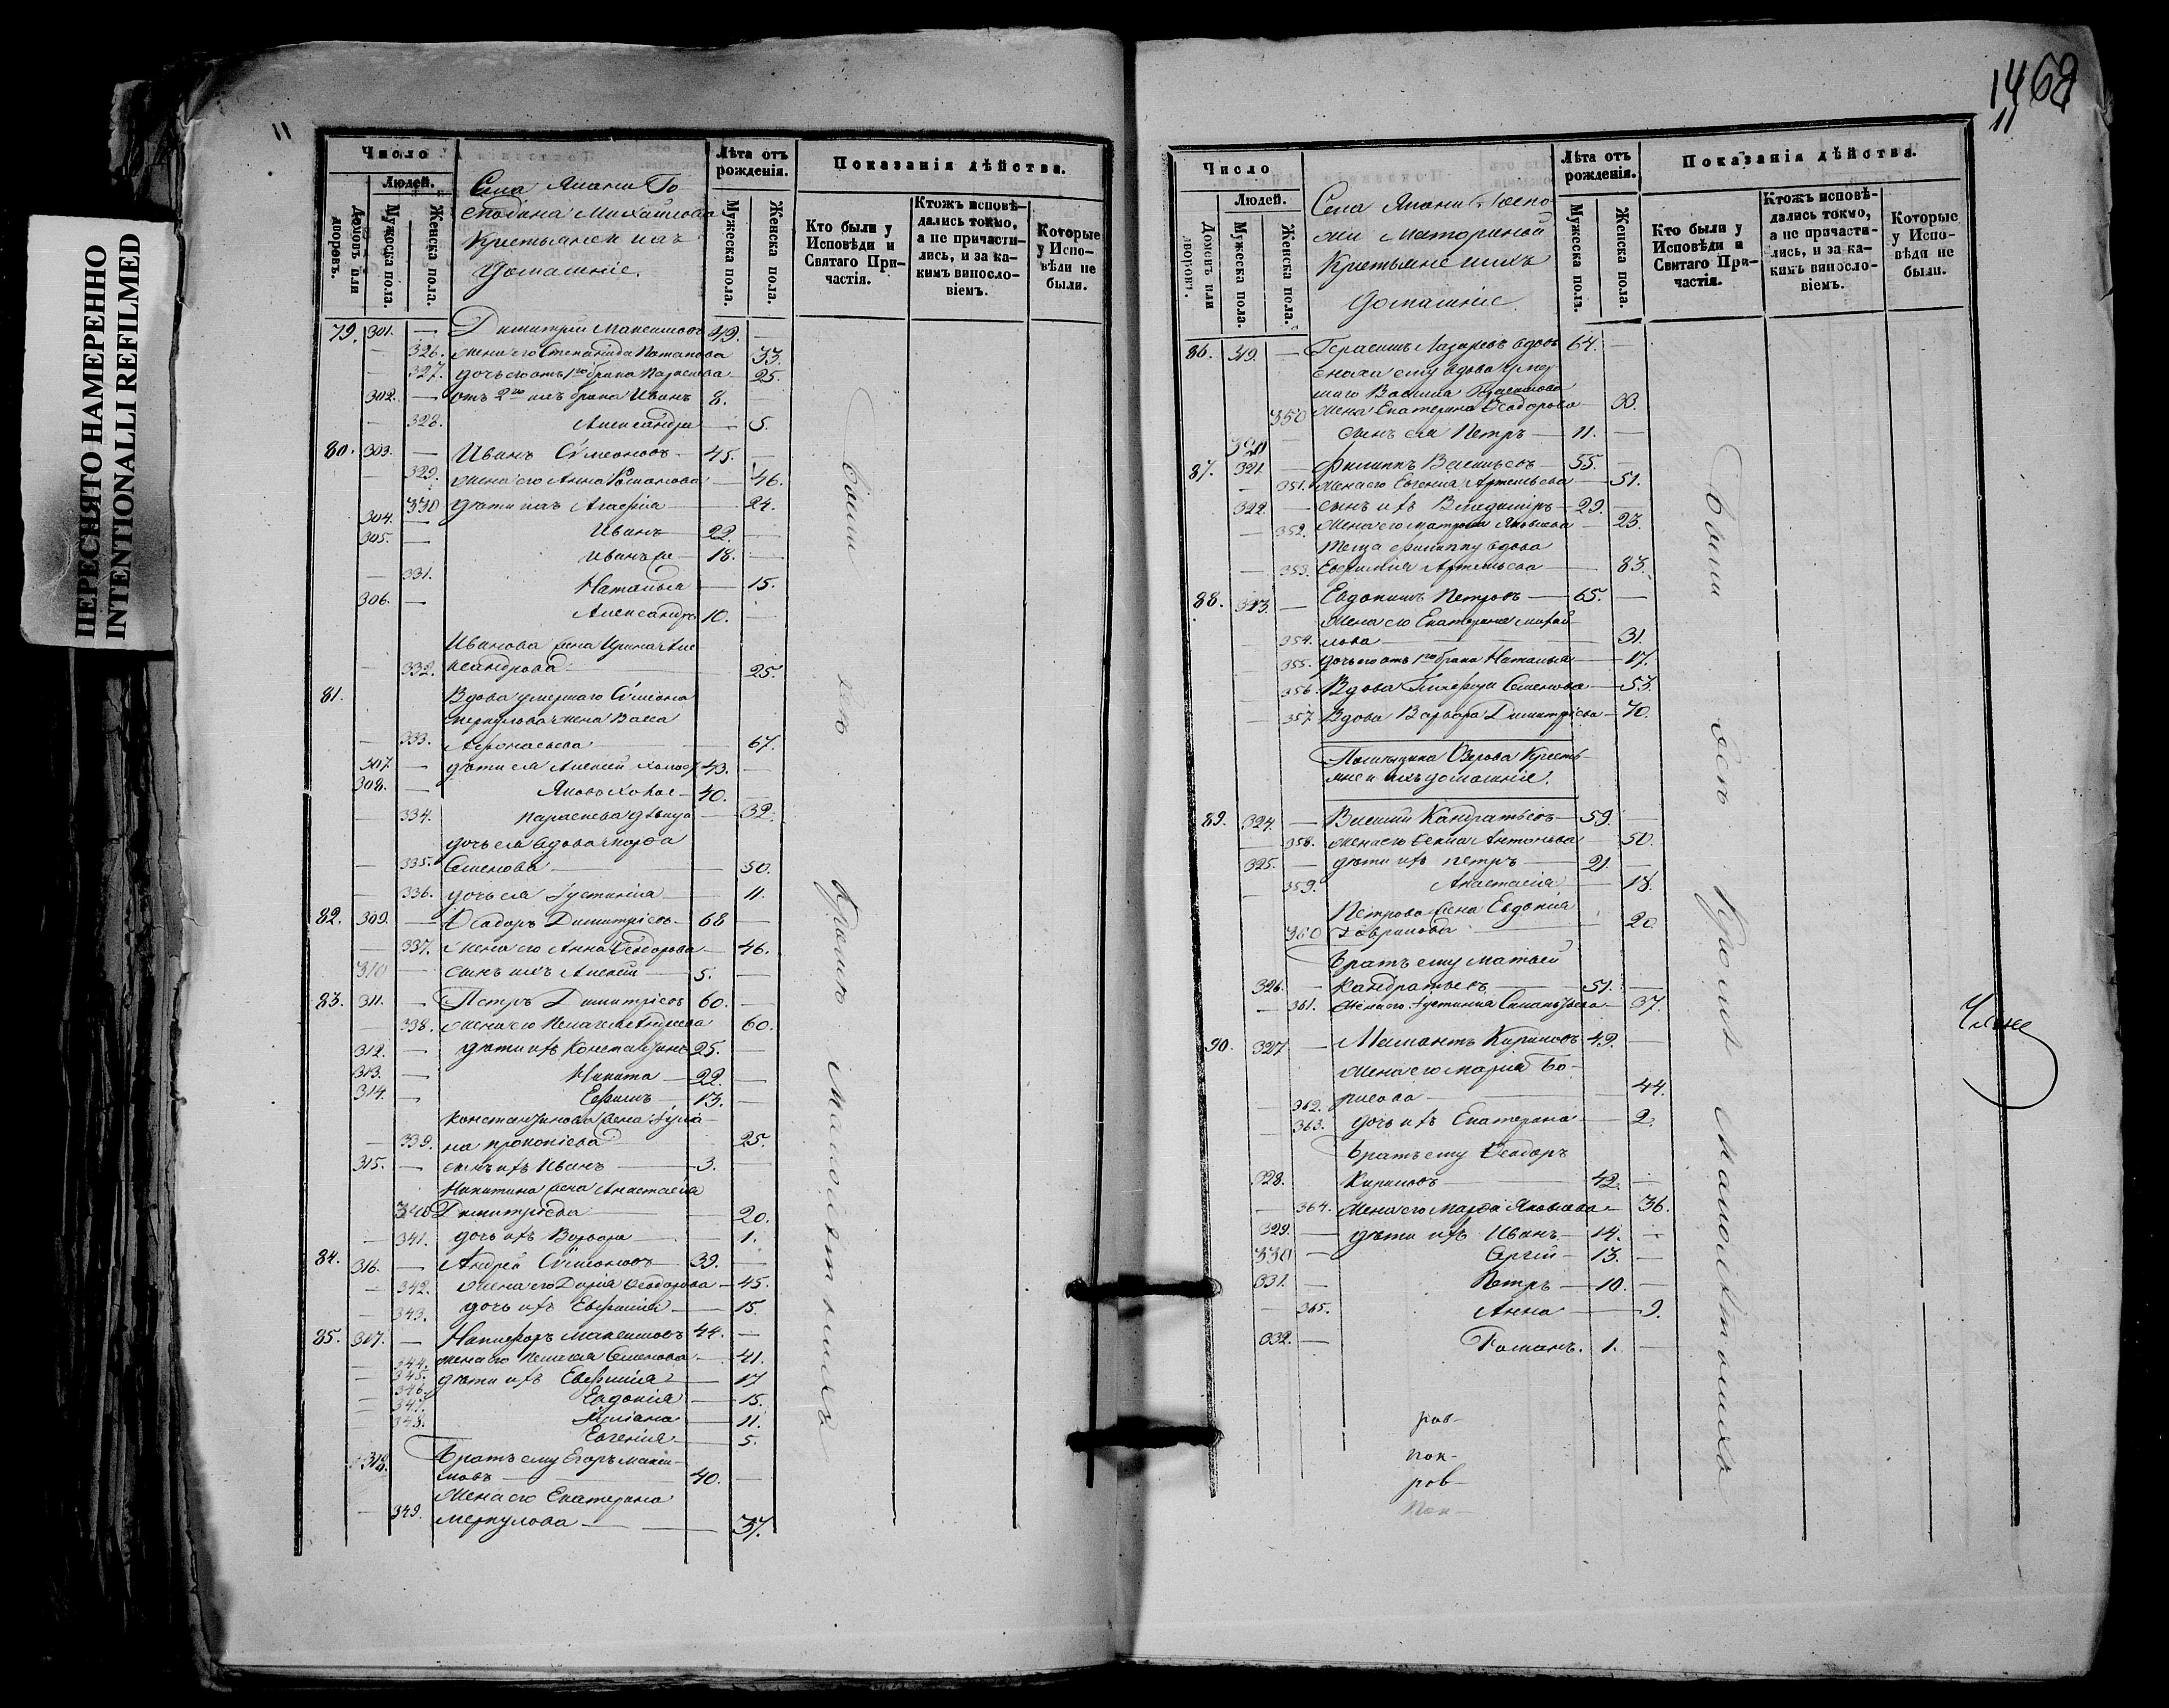 ПЕРЕСНЯТО НАМЕРЕННО
INTENTIONALLI REFILMED
11
Число
Людей.
Домовъ или дворовъ.
Мужеска пола.
Женска пола.
Села Лпани Го
сподина Михайлова
Крестьяне и ихъ
домашніе.
Лѣта отъ рожденія.
Мужеска пола.
Женска пола.
Показанія дѣйства.
Кто были у Исповѣди и Святаго Причастія.
Ктожъ исповѣ-дались токмо, а не причасти-лись, и за ка-кимъ винословіемъ.
Которые у Испо-вѣди не были.
79. 301. — Димитрій Максимовъ 49. —
— 326. жена его Степанида Потапова 33.
— 327. дочь его отъ 1го брака Параскева 25.
302. — отъ 2го ихъ брака Иванъ 8. —
— 328. Александра — 5.
80. 303. — Иванъ Сѵмеоновъ 45. —
— 329. жена его Анна Романова — 46.
330 дѣти ихъ Агафіа — 24.
304. — Иванъ 22. —
305. — Иванъ же 18. —
— 331. Наталья — 15.
306. — Александръ 10. —
Иванова жена Ирина Але
— 332. ксандрова 25.
81. Вдова умершаго Сѵмеона
Меркулова жена Васса
— 333. Афонасьева 67.
307. — дѣти ея Алексѣй холост 43. —
308. — Яковъ холос 40. —
— 334. Параскева дѣвица — 32.
дочь ея вдова Марѳа
— 335. Семенова — 50.
— 336. дочь ея Іустинія — 11.
82. 309. — Ѳеодоръ Димитріевъ 68 —
— 337. жена его Анна Ѳеодорова — 46.
310 — сынъ ихъ Алексѣй 5. —
83. 311. — Петръ Димитріевъ 60. —
— 338. жена его Пелагея Андреева 60.
312. — дѣти ихъ Константинъ 25. —
313. — Никита 22. —
314. — Ефимъ 13. —
Константинова жена Іулiа
— 339. на Прокопіева 25.
315. — сынъ ихъ Иванъ 3. —
Никитина жена Анастасіа
340 Димитріева 20.
— 341. дочь ихъ Варвара 1.
84. 316. — Андрей Сѵмеоновъ 39. —
— 342. жена его Дарія Ѳеодорова — 45.
— 343. дочь ихъ Евфимія — 15
85. 317. — Никифоръ Максимовъ 44. —
— 344. жена его Пелагея Семенова — 41.
— 345. дѣти ихъ Евфимія — 17
— 346. Евдокія — 15.
— 347. Іуліана — 11.
— 348. Евгенія — 5.
318. Братъ ему Егоръ Макси-
мовъ — 40. —
Жена его Екатерина
— 349. Меркулова — 37.
Были
Кромѣ
малолѣтнихъ
1468
11
Число
Людей.
Домовъ или дворовъ.
Мужеска пола.
Женска пола.
Села Лпани Госпо
жи Маториной
Крестьяне и ихъ
домашніе
Лѣта отъ рожденія.
Мужеска пола.
Женска пола.
Показанія дѣйства.
Кто были у Исповѣди и Святаго Причастія.
Ктожъ исповѣ-дались токмо, а не причасти-лись, и за ка-кимъ винословіемъ.
Которые у Испо-вѣди не были.
86. 319. — Герасимъ Лазаревъ вдовъ 64. —
сноха ему вдова умер
шаго Василія Герасимова
350 жена Екатерина Ѳеодорова 33.
320 — сынъ ея Петръ — 11. —
87. 321. — Филиппъ Васильевъ 55. —
— 351. жена его Евгенія Артемьева — 51.
322. — сынъ ихъ Владиміръ 29. —
— 352. жена его Матрона Яковлева — 23.
теща Филиппу вдова
— 353. Евфимія Артемьева — 83.
88. 323. — Евдокимъ Петровъ — 65. —
жена его Екатерина Михай
— 354. лова — 31.
355. дочь его отъ 1го брака Наталья — 17.
356. Вдова Гликерія Семенова — 53.
— 357. Вдова Варвара Димитріева — 70.
Помѣщика Озерова Кресть-
яне и ихъ домашніе.
89. 324. — Василій Кандратьевъ — 59. —
— 358. жена его Ѳекла Антоньева 50.
325. — дѣти ихъ Петръ — 21. —
— 359. Анастасія — 18.
Петрова жена Евдокія
360 Гаврилова 20.
Братъ ему Матвѣй
326. — Кандратьевъ — 51. —
— 361. жена его Іустинія — 37.
90. 327 — Мамонтъ Кириловъ 49. —
жена его Марія Бо-
— 362. рисова — 44.
— 363. дочь ихъ Екатерина — 2.
Братъ ему Ѳеодоръ
328. Кириловъ — 42. —
— 364. жена его Марѳа Яковлева — 36.
329. — дѣти ихъ Иванъ — 14. —
330 — Сергій — 13. —
331. — Петръ — 10. —
— 365. Анна — 9.
332. — Романъ. 1. —
Были
Кромѣ
Малолѣтнихъ